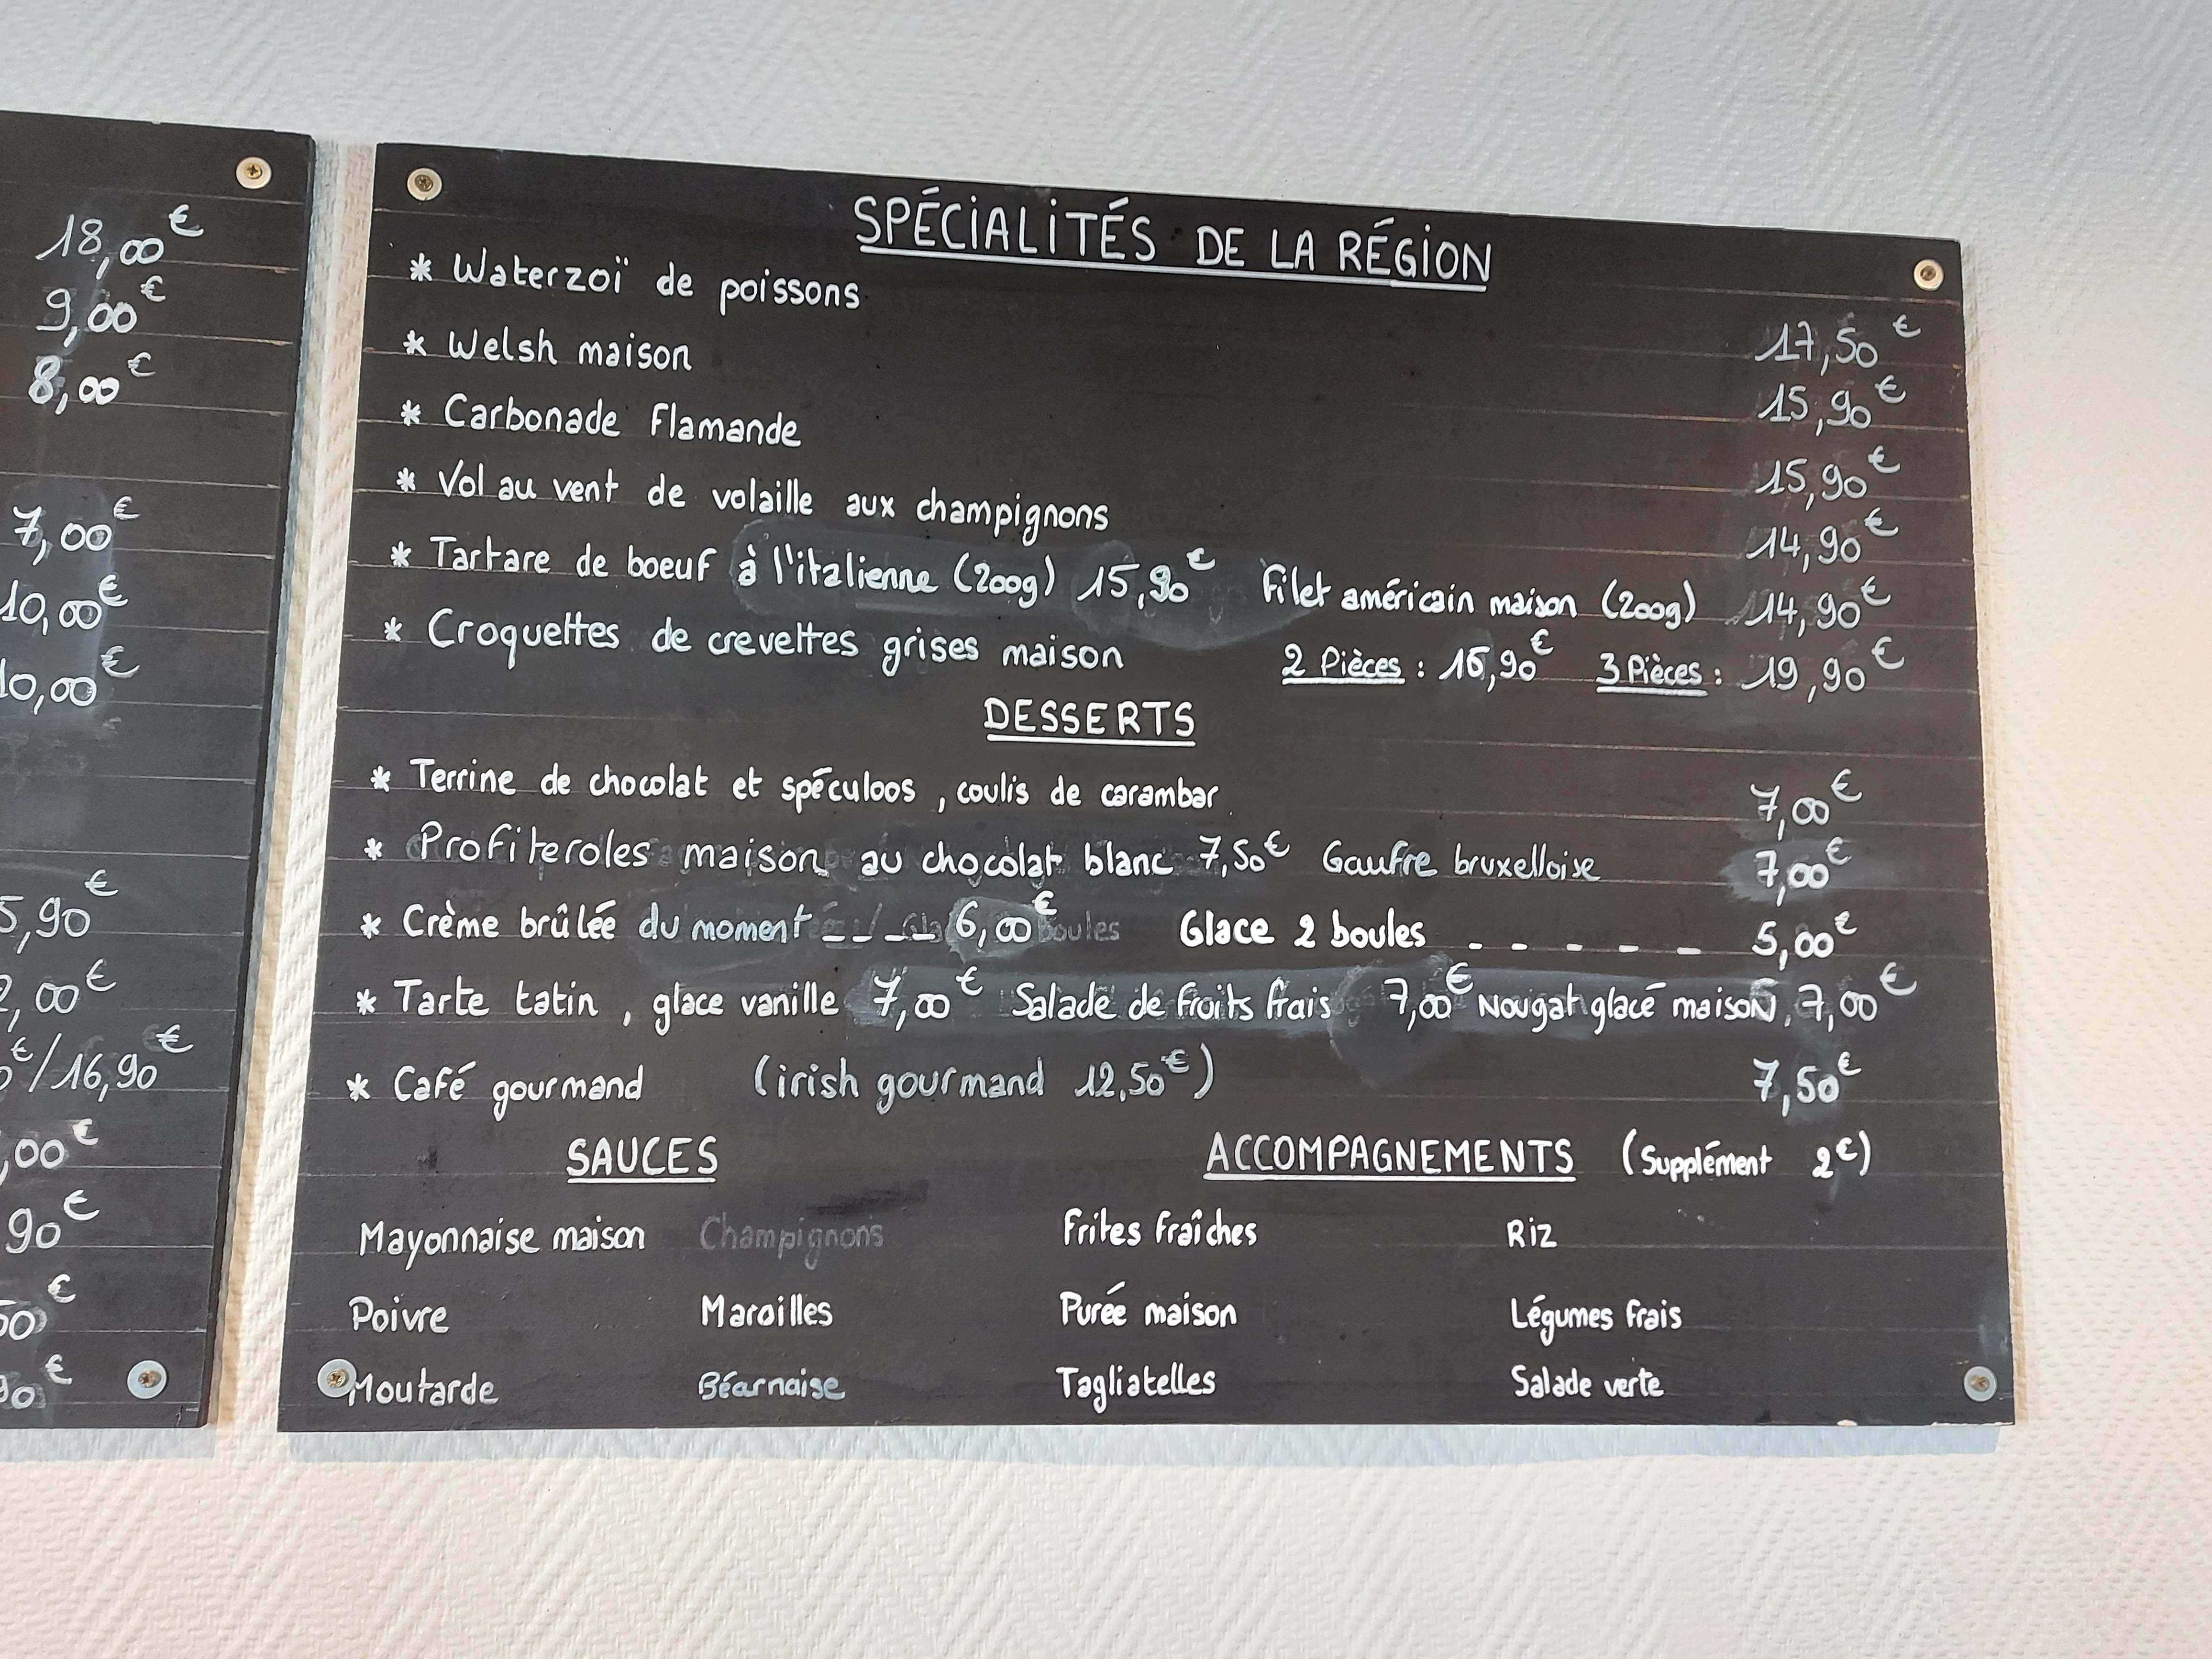 18,00€
9,00€
8,00€
7,00€
10,00€
10,00€
5,90€
2,00€
€/16,90€
,00€
90€
50€
90€
SPÉCIALITÉS DE LA RÉGION
* Waterzoï de poissons 17,50€
* Welsh maison 15,90€
* Carbonade Flamande 15,90€
* Vol au vent de volaille aux champignons 14,90€
* Tartare de boeuf à l'italienne (200g) 15,90€ Filet américain maison (200g) 14,90€
* Croquettes de crevettes grises maison 2 Pièces : 16,90€ 3 Pièces : 19,90€
DESSERTS
* Terrine de chocolat et spéculoos , coulis de carambar 7,00€
* Profiteroles maison au chocolat blanc 7,50€ Gaufre bruxelloise 7,00€
* Crème brûlée du moment _ _ _ _ 6,00€ Glace 2 boules _ _ _ _ _ _ 5,00€
* Tarte tatin , glace vanille 7,00€ Salade de fruits frais 7,00€ Nougat glacé maison, 7,00€
* Café gourmand (irish gourmand 12,50€) 7,50€
SAUCES ACCOMPAGNEMENTS (Supplément 2€)
Mayonnaise maison Champignons Frites fraîches Riz
Poivre Maroilles Purée maison Légumes frais
Moutarde Béarnaise Tagliatelles Salade verte